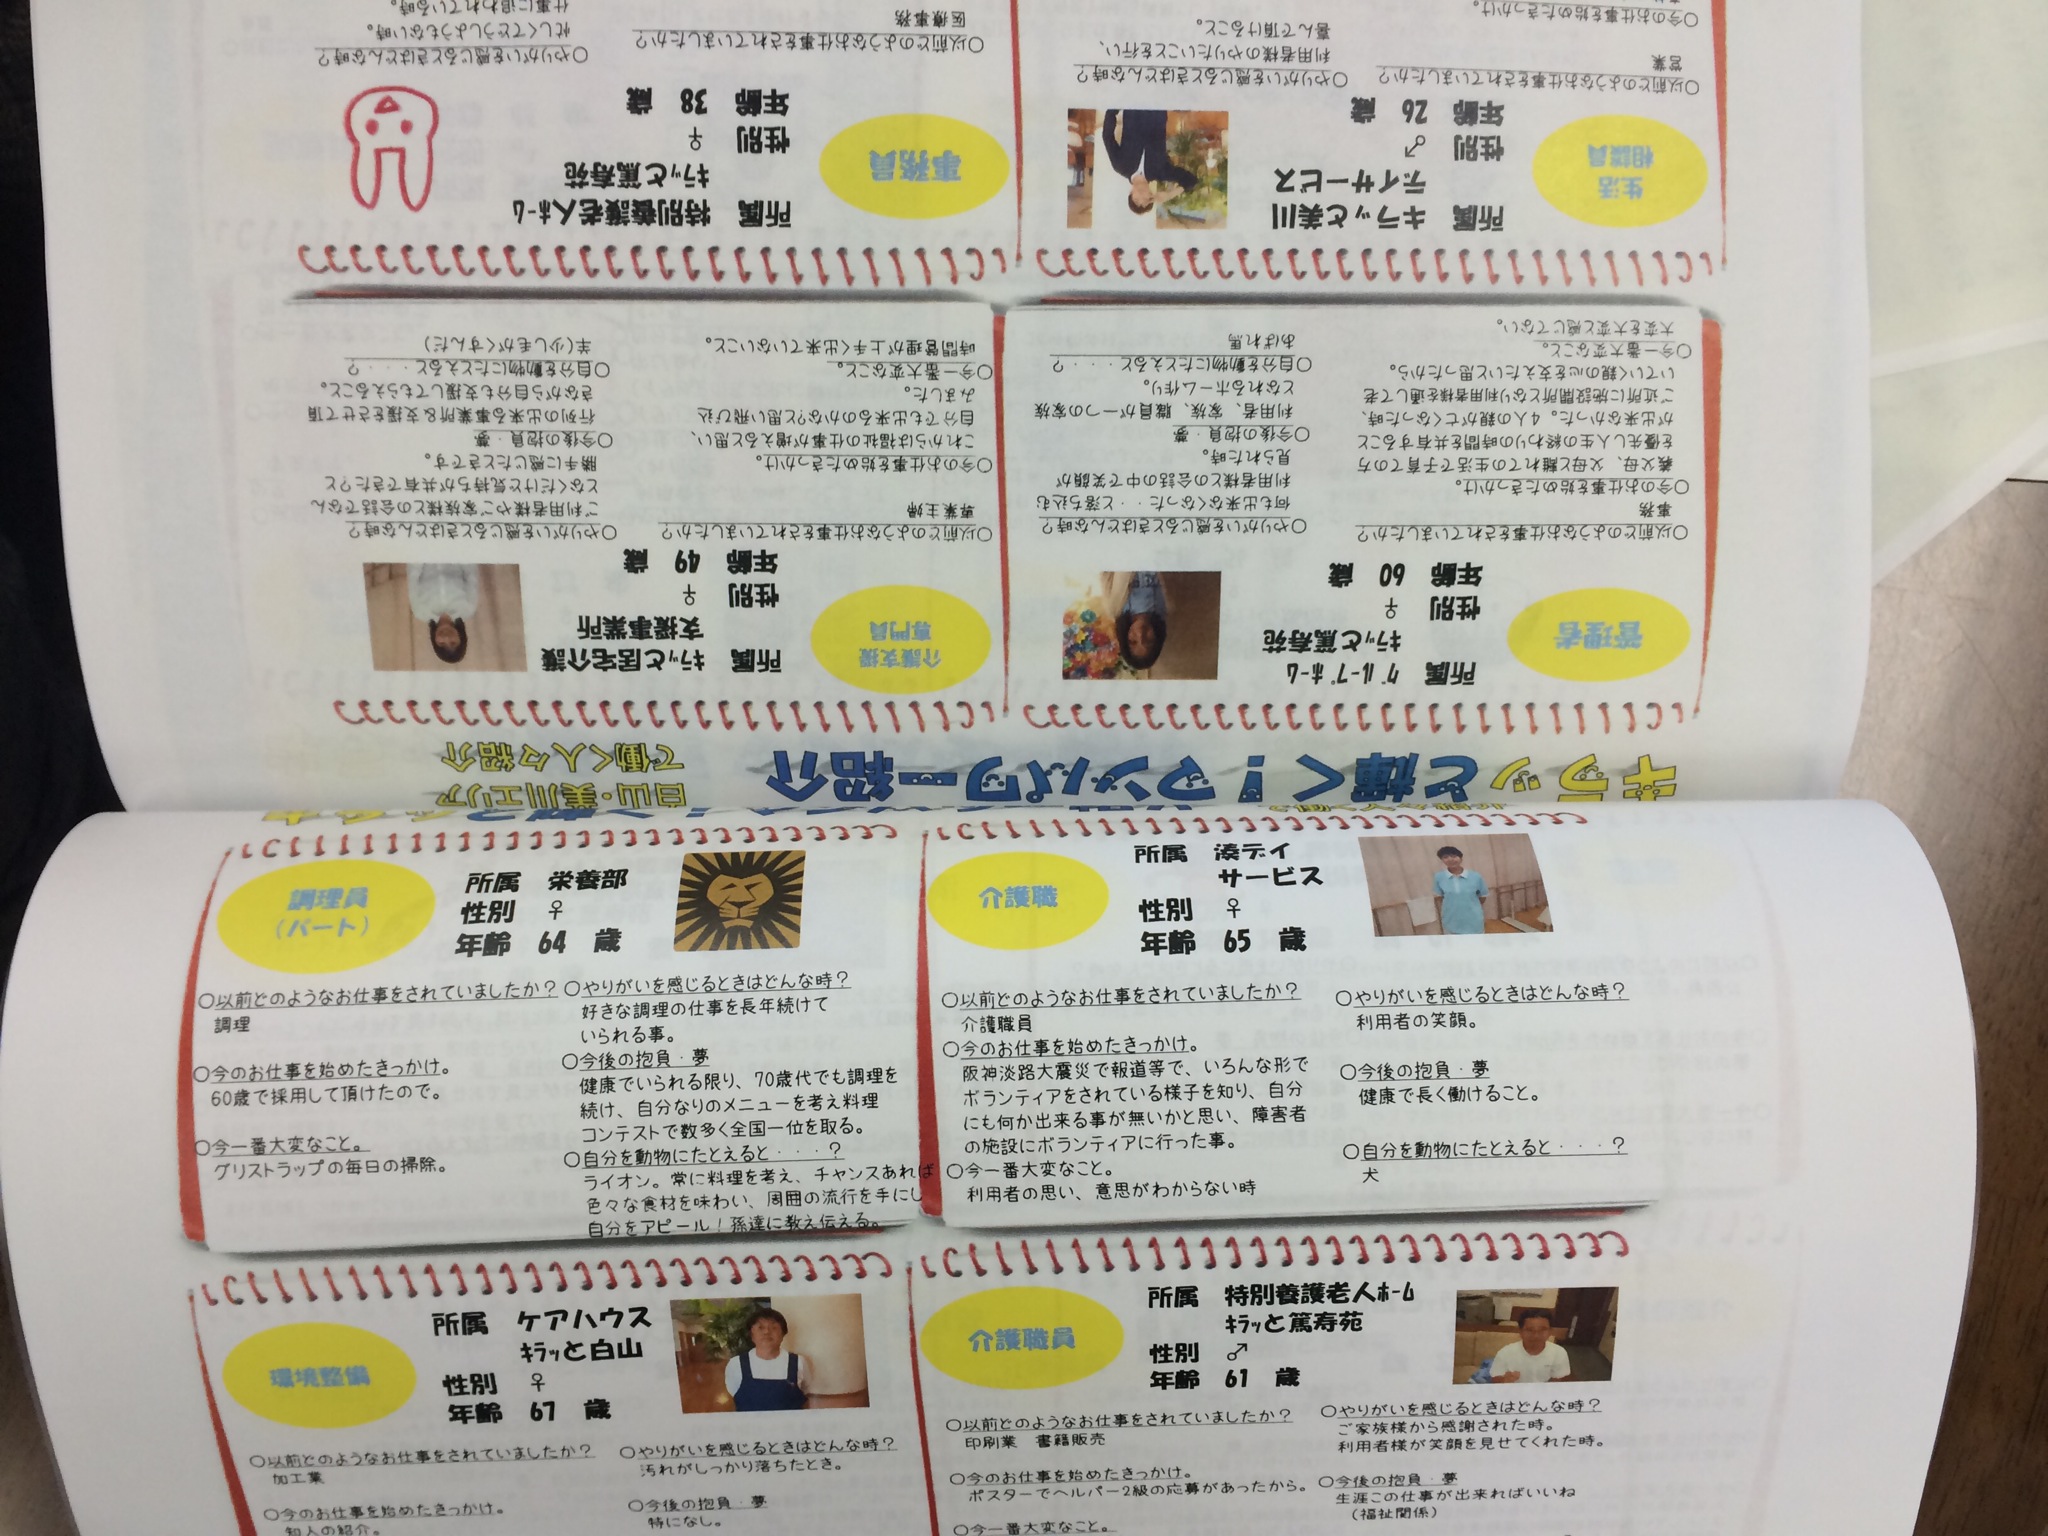 キラッと輝く！マンパワー紹介
白山・美川エリア
で働く人々紹介
管理者
所属 ｸﾞﾙｰﾌﾟﾎｰﾑ
ｷﾗｯと篤寿苑
性別 ♀
年齢 60 歳
○以前どのようなお仕事をされていましたか？
事務
○今のお仕事を始めたきっかけ。
義父母、父母と離れての生活で子育ての方
を優先し人生の終わりの時間を共有すること
が出来なかった。4人の親が亡くなった時、
ご近所に施設開所となり利用者様を通して老
いていく親の心を支えたいと思ったから。
○今一番大変なこと。
大変を大変と感じてない。
○やりがいを感じるときはどんな時？
何も出来なくなった・・と落ち込む
利用者様との会話の中で笑顔が
見られた時。
○今後の抱負・夢
利用者、家族、職員が一つの家族
となれるホーム作り。
○自分を動物にたとえると・・・・？
あばれ馬
介護支援
専門員
所属 ｷﾗｯと居宅介護
支援事業所
性別 ♀
年齢 49 歳
○以前どのようなお仕事をされていましたか？
専業主婦
○今のお仕事を始めたきっかけ。
これからは福祉の仕事が増えると思い、
自分でも出来るのかな？と思い飛び込
みました。
○今一番大変なこと。
時間管理が上手く出来ていないこと。
○やりがいを感じるときはどんな時？
ご利用者様やご家族様との会話でなん
となくだけど気持ちが共有できた？と
勝手に感じたときです。
○今後の抱負・夢
行列の出来る事業所＆支援をさせて頂
きながら自分も支援してもらえること。
○自分を動物にたとえると・・・・？
羊(少し毛がくすんだ)
生活
相談員
所属 キラッと美川
デイサービス
性別 ♂
年齢 26 歳
○以前どのようなお仕事をされていましたか？
営業
○今のお仕事を始めたきっかけ。
○やりがいを感じるときはどんな時？
利用者様のやりたいことを行い、
喜んで頂けること。
事務員
所属 特別養護老人ﾎｰﾑ
ｷﾗｯと篤寿苑
性別 ♀
年齢 38 歳
○以前どのようなお仕事をされていましたか？
医療事務
○やりがいを感じるときはどんな時？
忙しくてどうしようもない時。
仕事に追われている時。
調理員
（パート）
所属 栄養部
性別 ♀
年齢 64 歳
○以前どのようなお仕事をされていましたか？
調理
○今のお仕事を始めたきっかけ。
60歳で採用して頂けたので。
○今一番大変なこと。
グリストラップの毎日の掃除。
○やりがいを感じるときはどんな時？
好きな調理の仕事を長年続けて
いられる事。
○今後の抱負・夢
健康でいられる限り、70歳代でも調理を
続け、自分なりのメニューを考え料理
コンテストで数多く全国一位を取る。
○自分を動物にたとえると・・・・？
ライオン。常に料理を考え、チャンスあれば
色々な食材を味わい、周囲の流行を手にし
自分をアピール！孫達に教え伝える。
介護職
所属 湊デイ
サービス
性別 ♀
年齢 65 歳
○以前どのようなお仕事をされていましたか？
介護職員
○今のお仕事を始めたきっかけ。
阪神淡路大震災で報道等で、いろんな形で
ボランティアをされている様子を知り、自分
にも何か出来る事が無いかと思い、障害者
の施設にボランティアに行った事。
○今一番大変なこと。
利用者の思い、意思がわからない時
○やりがいを感じるときはどんな時？
利用者の笑顔。
○今後の抱負・夢
健康で長く働けること。
○自分を動物にたとえると・・・・？
犬
環境整備
所属 ケアハウス
ｷﾗｯと白山
性別 ♀
年齢 67 歳
○以前どのようなお仕事をされていましたか？
加工業
○今のお仕事を始めたきっかけ。
知人の紹介。
○やりがいを感じるときはどんな時？
汚れがしっかり落ちたとき。
○今後の抱負・夢
特になし。
介護職員
所属 特別養護老人ﾎｰﾑ
ｷﾗｯと篤寿苑
性別 ♂
年齢 61 歳
○以前どのようなお仕事をされていましたか？
印刷業 書籍販売
○今のお仕事を始めたきっかけ。
ポスターでヘルパー2級の応募があったから。
○今一番大変なこと。
○やりがいを感じるときはどんな時？
ご家族様から感謝された時。
利用者様が笑顔を見せてくれた時。
○今後の抱負・夢
生涯この仕事が出来ればいいね
（福祉関係）